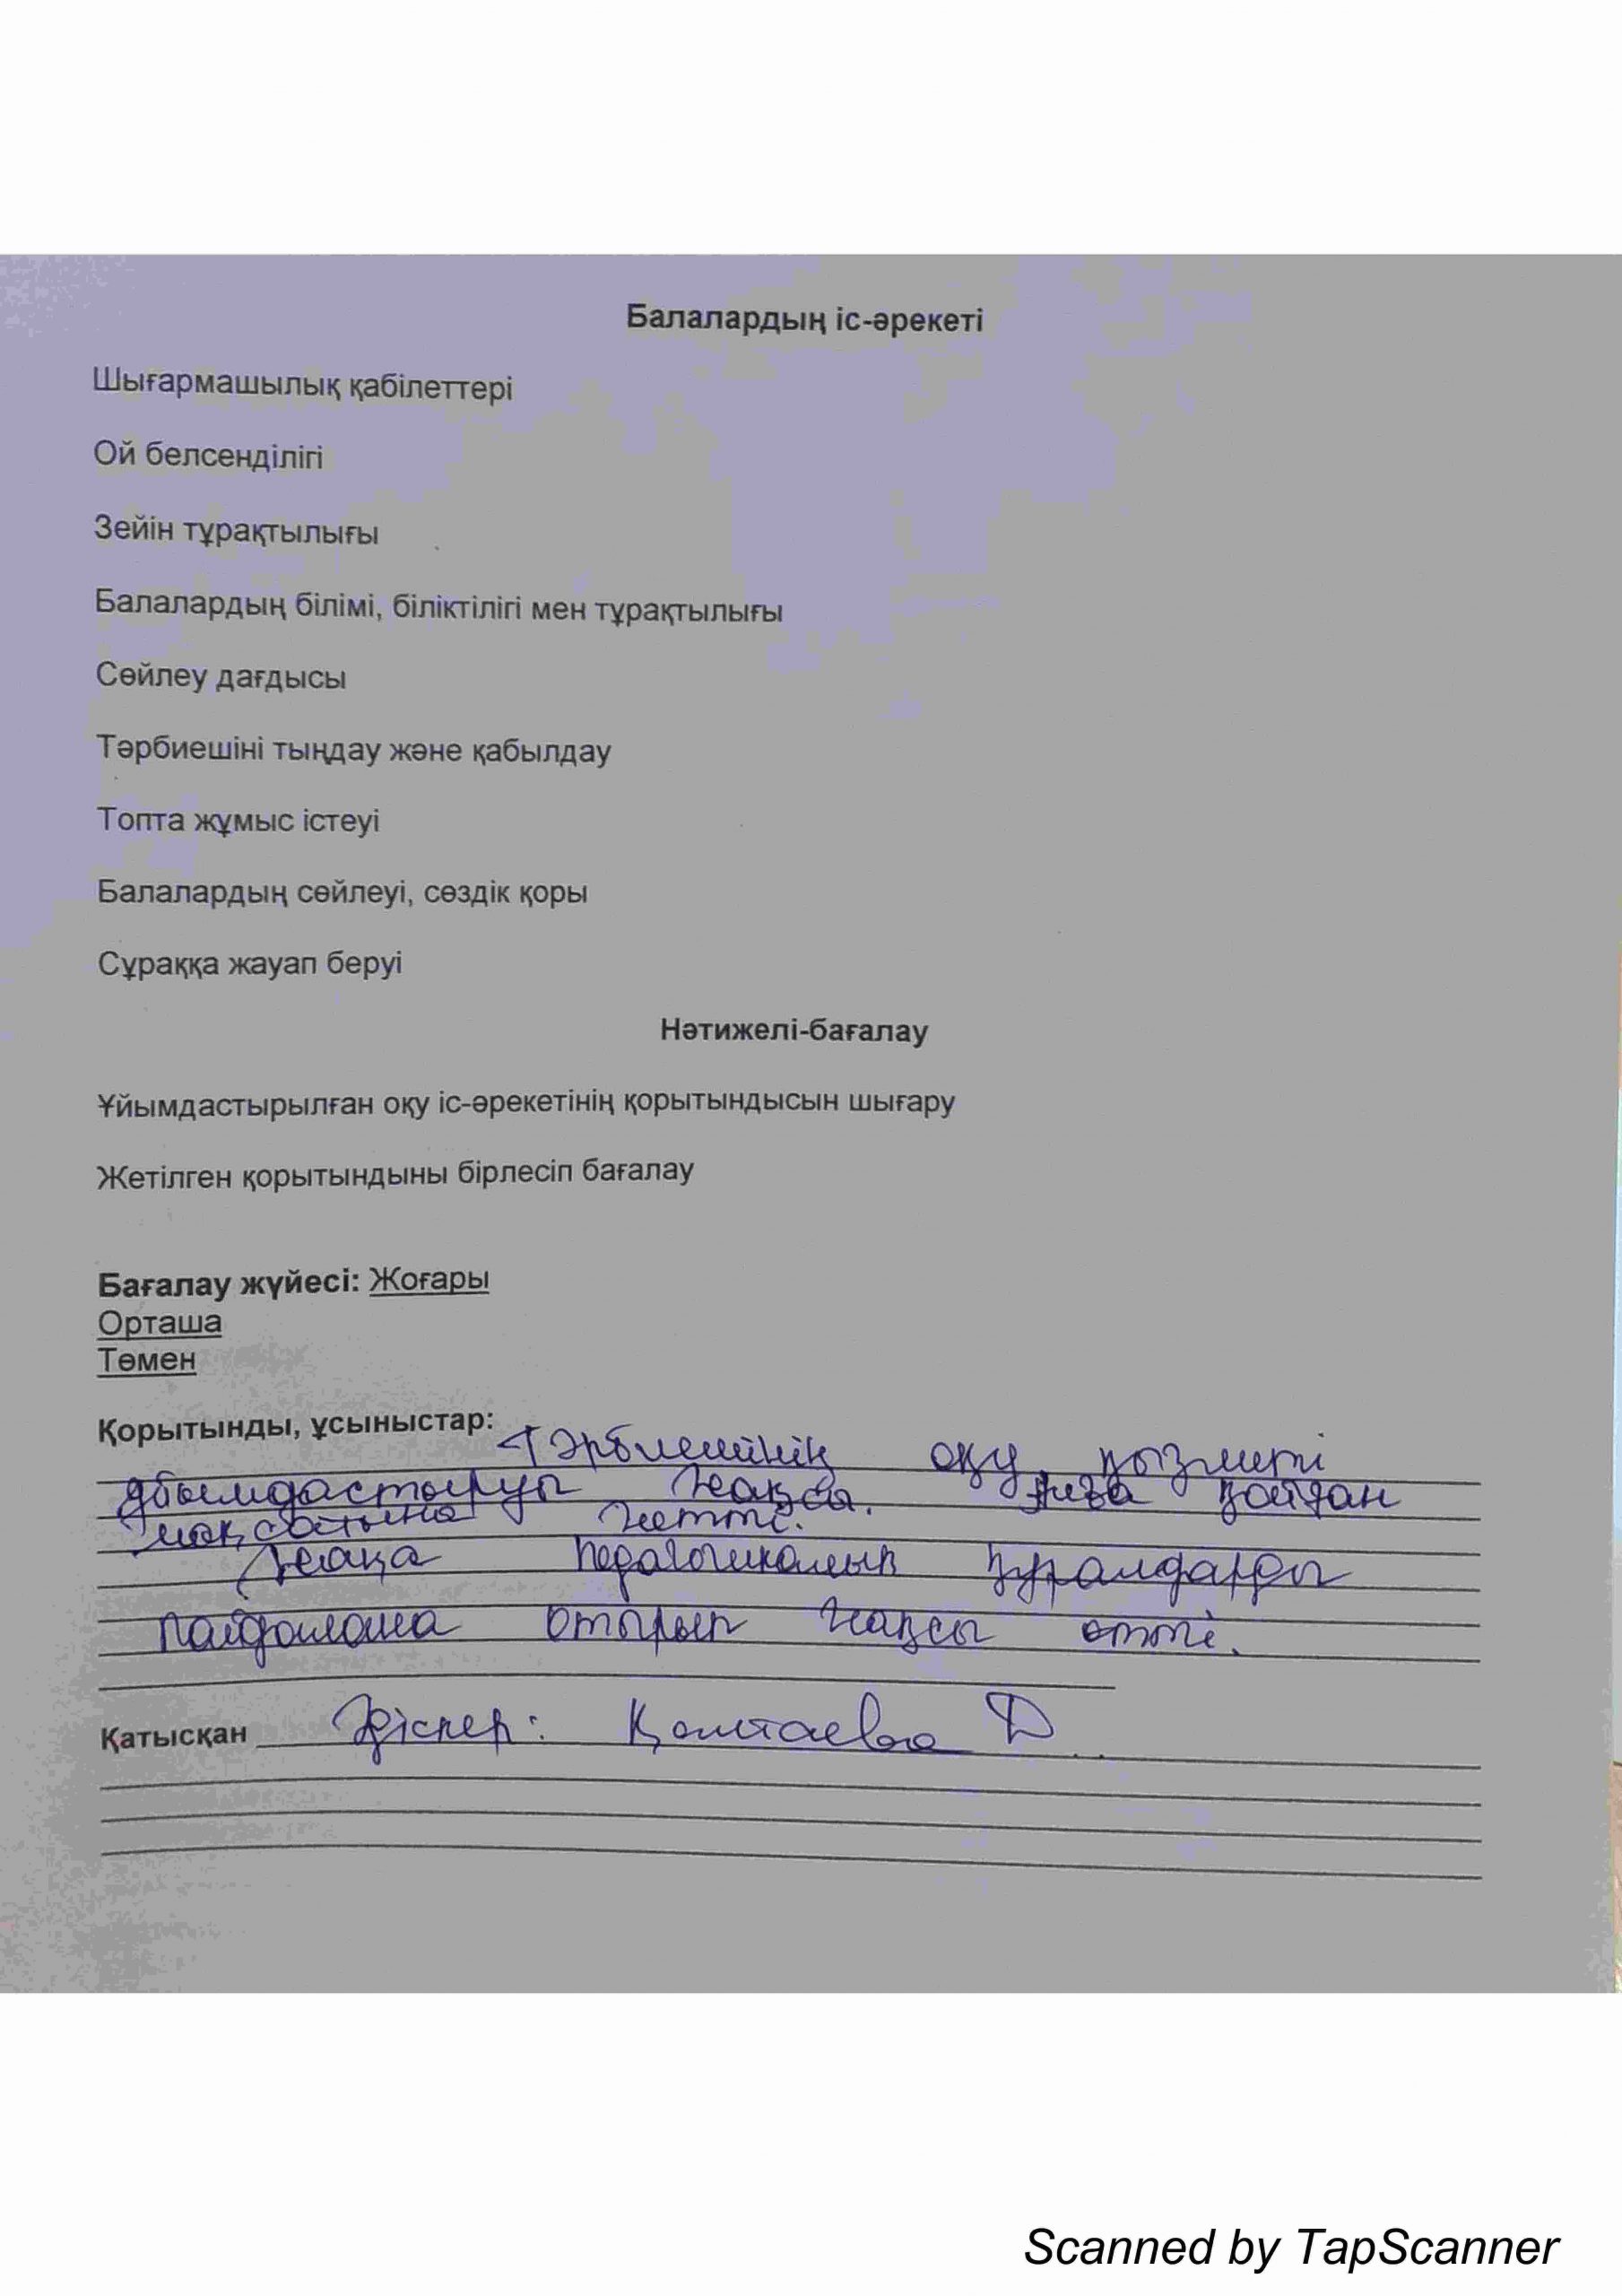 Балалардың іс-әрекеті
Шығармашылық қабілеттері
Ой белсенділігі
Зейін тұрақтылығы
Балалардың білімі, біліктілігі мен тұрақтылығы
Сөйлеу дағдысы
Тәрбиешіні тыңдау және қабылдау
Топта жұмыс істеуі
Балалардың сөйлеуі, сөздік қоры
Сұраққа жауап беруі
Нәтижелі-бағалау
Ұйымдастырылған оқу іс-әрекетінің қорытындысын шығару
Жетілген қорытындыны бірлесіп бағалау
Бағалау жүйесі: Жоғары
Орташа
Төмен
Қорытынды, ұсыныстар: Тәрбиешінің оқу қызметі
ұйымдастыруы жақсы. алға қойған
мақсатына жетті.
Жаңа педагогикалық құралдарды
пайдалана отырып жақсы өтті.
Қатысқан Әдіскер: Қалтаева Д
Scanned by TapScanner